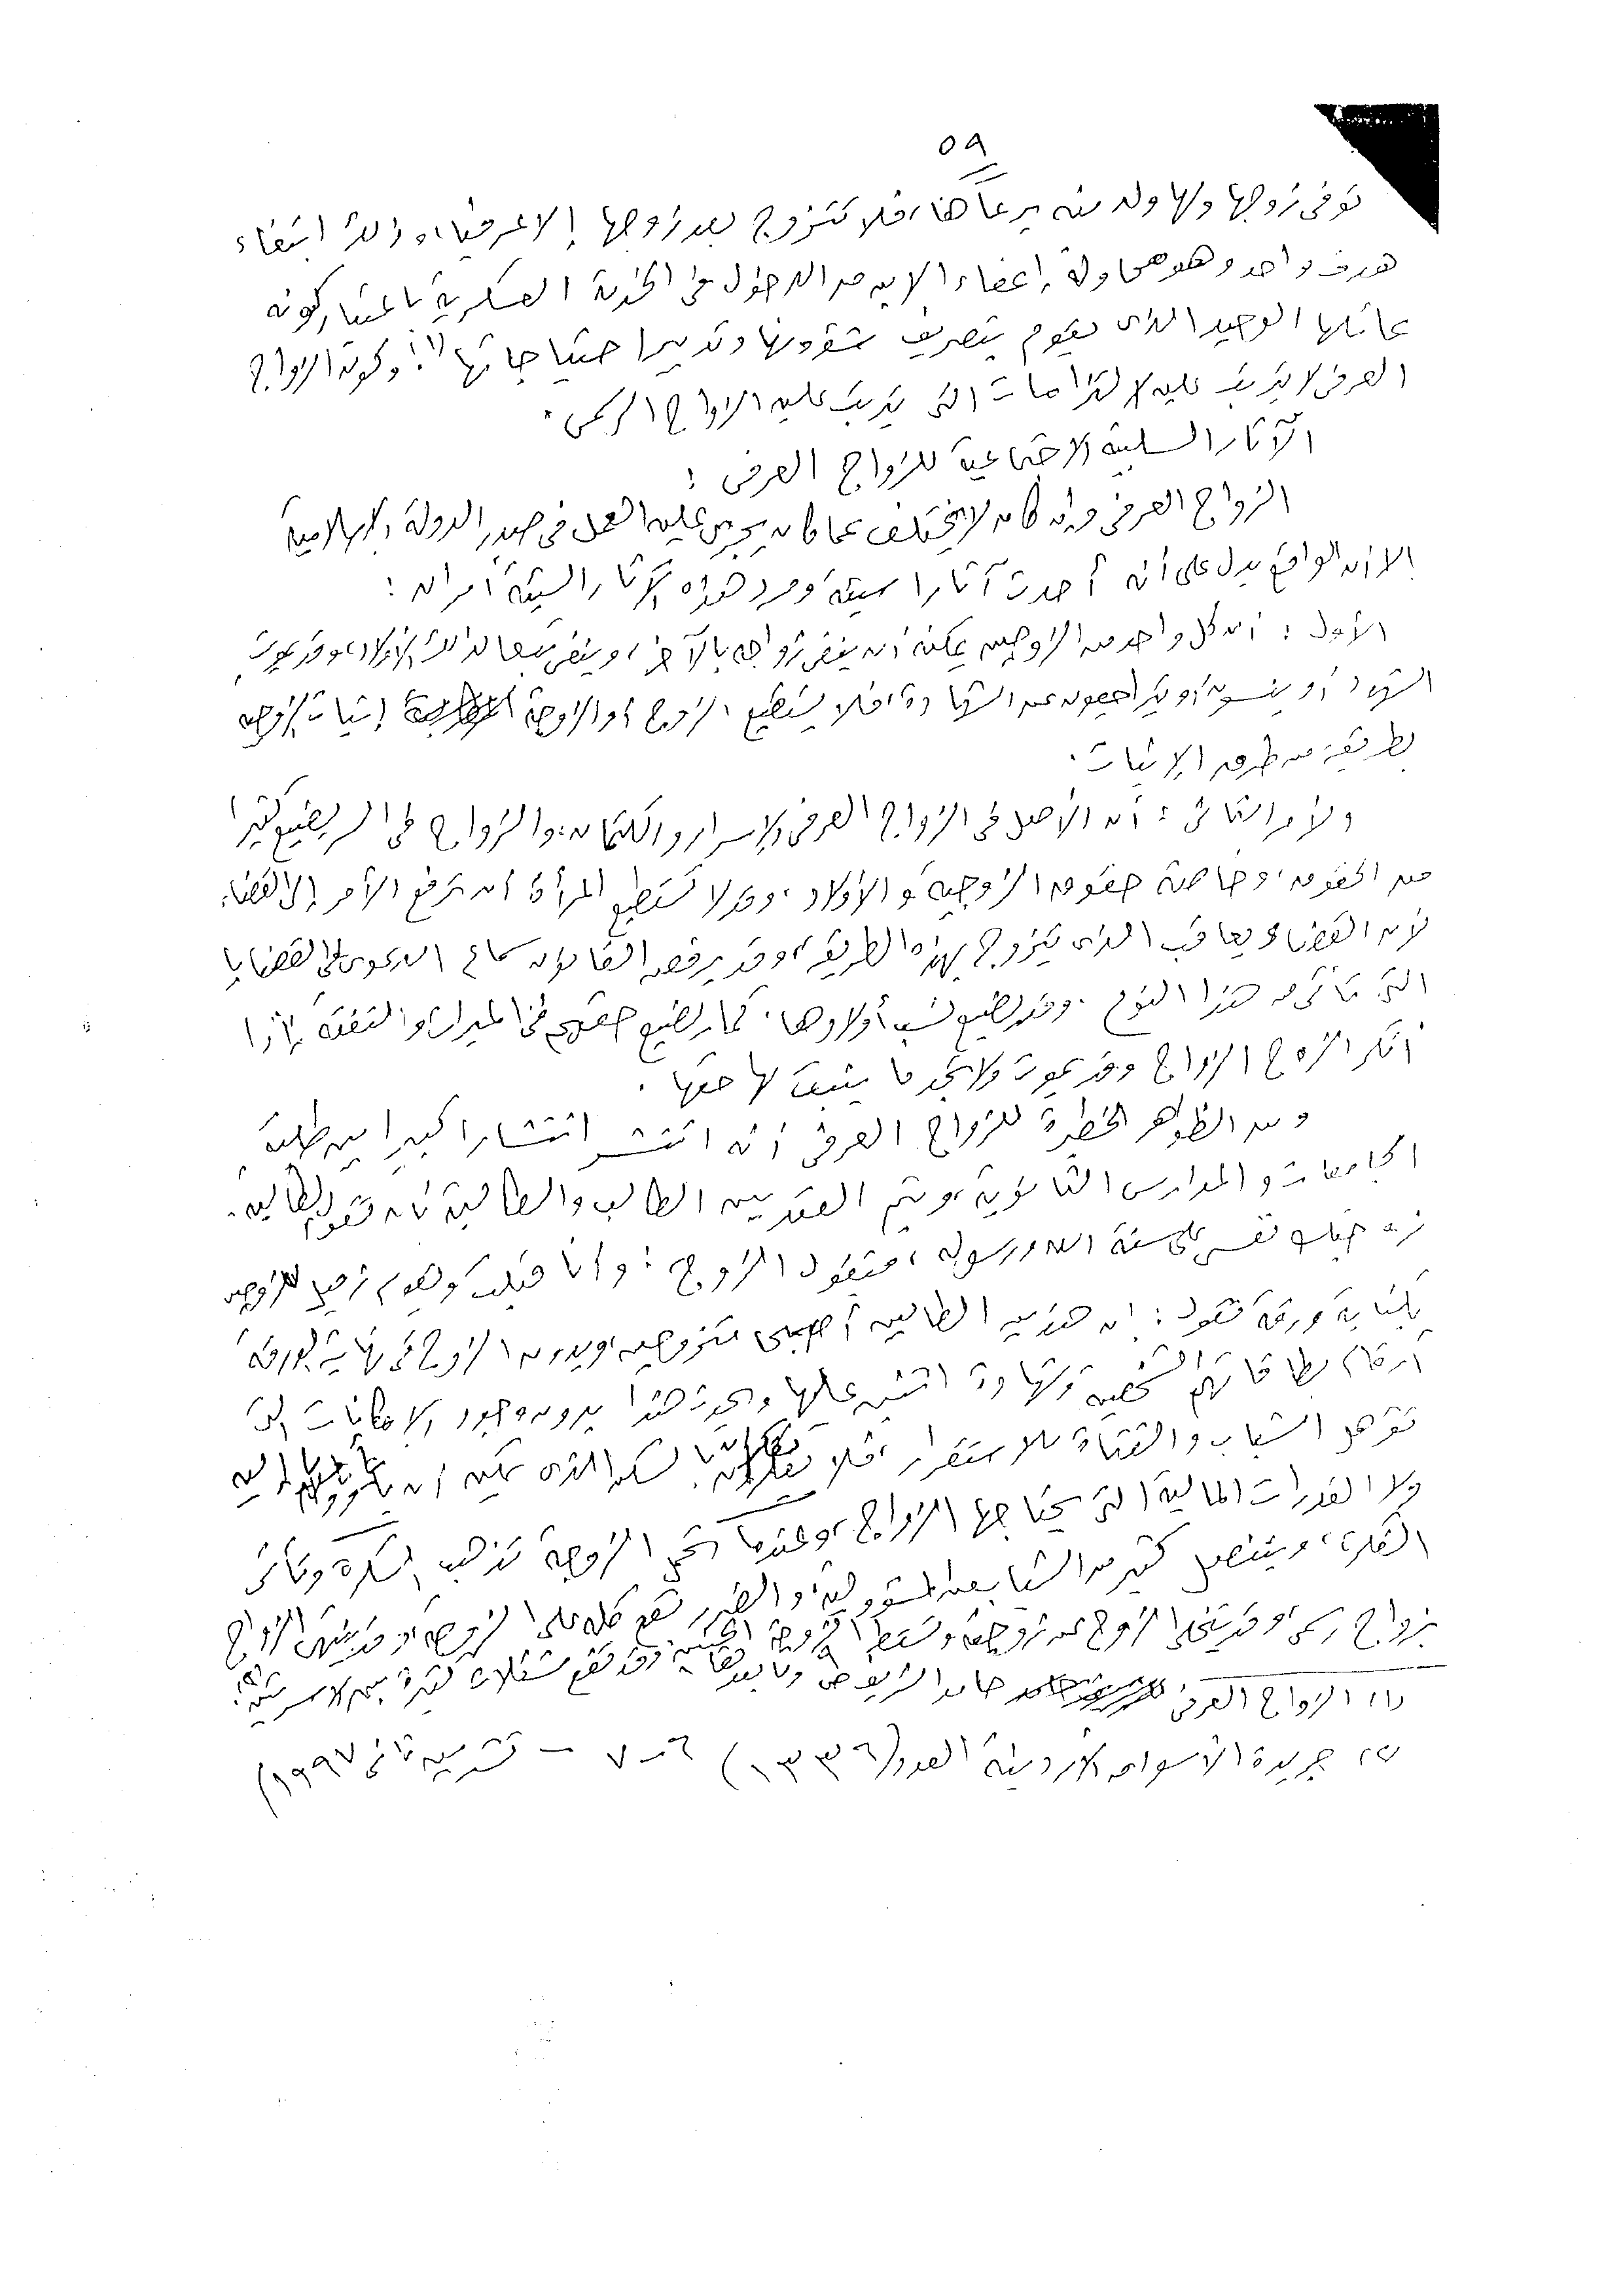 ٥٩
توفى زوجها ولها ولد منه يرعاها، فلا تتزوج بعد زوجها إلا عرفيا، وذلك ابتغاء
هدف واحد وهو محاولة إعفاء الابن من الدخول في الخدمة العسكرية باعتبار كونه
عائلها الوحيد الذي يقوم بتصريف شؤونها وتدبير احتياجاتها (١). وكون الزواج
العرفي لا يترتب عليه الالتزامات التي يترتب عليها الزواج الرسمي.
الآثار السلبية الاجتماعية للزواج العرفي :
الزواج العرفي وإن كان لا يختلف عما كان يجري عليه العمل في صدر الدولة الإسلامية
إلا أن الواقع يدل على أنه أحدث آثارا سيئة ومرد هذه الآثار السيئة أمران :
الأول : أن كل واحد من الزوجين يمكنه أن ينفي زواجه بالآخر، وينفى تبعا لذلك الأولاد، وقد يموت
الشهود أو ينسون أو يتراجعون عن الشهادة، فلا يستطيع الزوج أو الزوجة إثبات الزوجية
بطريقة من طرق الإثبات.
والأمر الثاني : أن الأصل في الزواج العرفي الإسرار والكتمان، والزواج في السر يضيع كثيرا
من الحقوق، وخاصة حقوق الزوجية والأولاد، وقد لا تستطيع المرأة أن ترفع الأمر إلى القضاء
لأن القضاء يعاقب الذي يتزوج بهذه الطريقة، وقد يرفض القانون سماع الدعوى في القضايا
التي تأتي من هذا النوع. وقد يضيع نسب أولادها. كما يضيع حقهم في الميراث والنفقة إذا
أنكر الزوج الزواج وقد يموت ولا تجد ما يثبت لها حقها.
ومن الظواهر الخطيرة للزواج العرفي أنه انتشر انتشارا كبيرا بين طلبة
الجامعات والمدارس الثانوية، ويتم العقد بين الطالب والطالبة بأن تقول الطالبة.
زوجتك نفسي على سنة الله ورسوله، فيقول الزوج : وأنا قبلت ويقوم زميل للزوجين
بكتابة ورقة تقول : إن هذين الطالبين أصبحا متزوجين ويدون الزوجان في نهاية الورقة
أرقام بطاقاتهم الشخصية وشهادة اثنين عليها ويحدث هذا بدون وجود الإمكانات التي
تؤهل الشباب والفتاة للاستقرار، فلا يملكان السكن الذي يمكن أن يأويا إليه
ولا القدرات المالية التي يحتاجها الزواج، وعندما تحمل الزوجة تذهب السكرة وتأتي
الفكرة، ويتنصل كثير من الشباب من المسؤولية، والضرر يقع كله على الزوجة، وقد ينتهي الزواج
بزواج رسمي وقد يتخلى الزوج عن زوجته وتسقط الزوجة الجنين وقد تقع مشكلات كثيرة بين الأسرتين (٢).
(١) الزواج العرفي حامد الشريف ص وما بعدها.
(٢) جريدة الأسواق الأردنية العدد (١٣٣٦) ٦-٧ - تشرين ثاني ١٩٩٧)